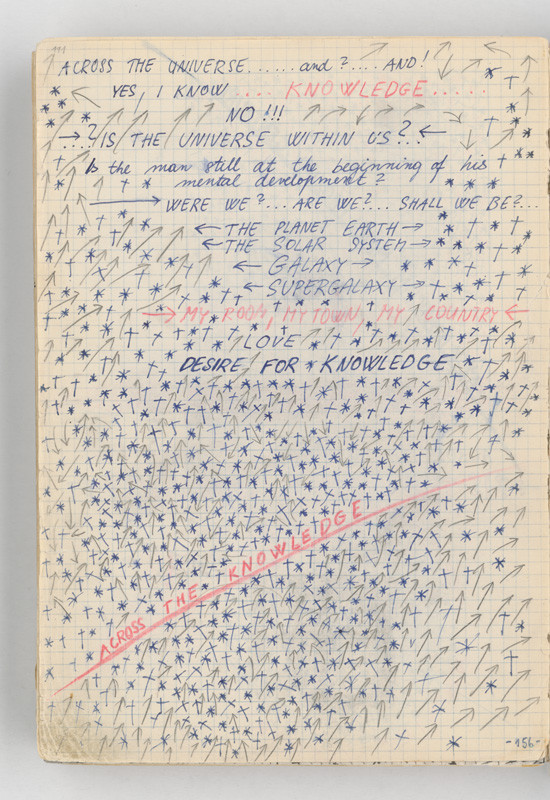 ACROSS THE UNIVERSE......and?....AND!
YES, I KNOW .... KNOWLEDGE.....
NO!!!
→...? IS THE UNIVERSE WITHIN US?...←
Is the man still at the beginning of his
mental development?
→ WERE WE?...ARE WE?... SHALL WE BE?...
← THE PLANET EARTH →
← THE SOLAR SYSTEM →
← GALAXY →
← SUPERGALAXY →
→ MY ROOM, MY TOWN, MY COUNTRY ←
LOVE
DESIRE FOR KNOWLEDGE
ACROSS THE KNOWLEDGE
-156-